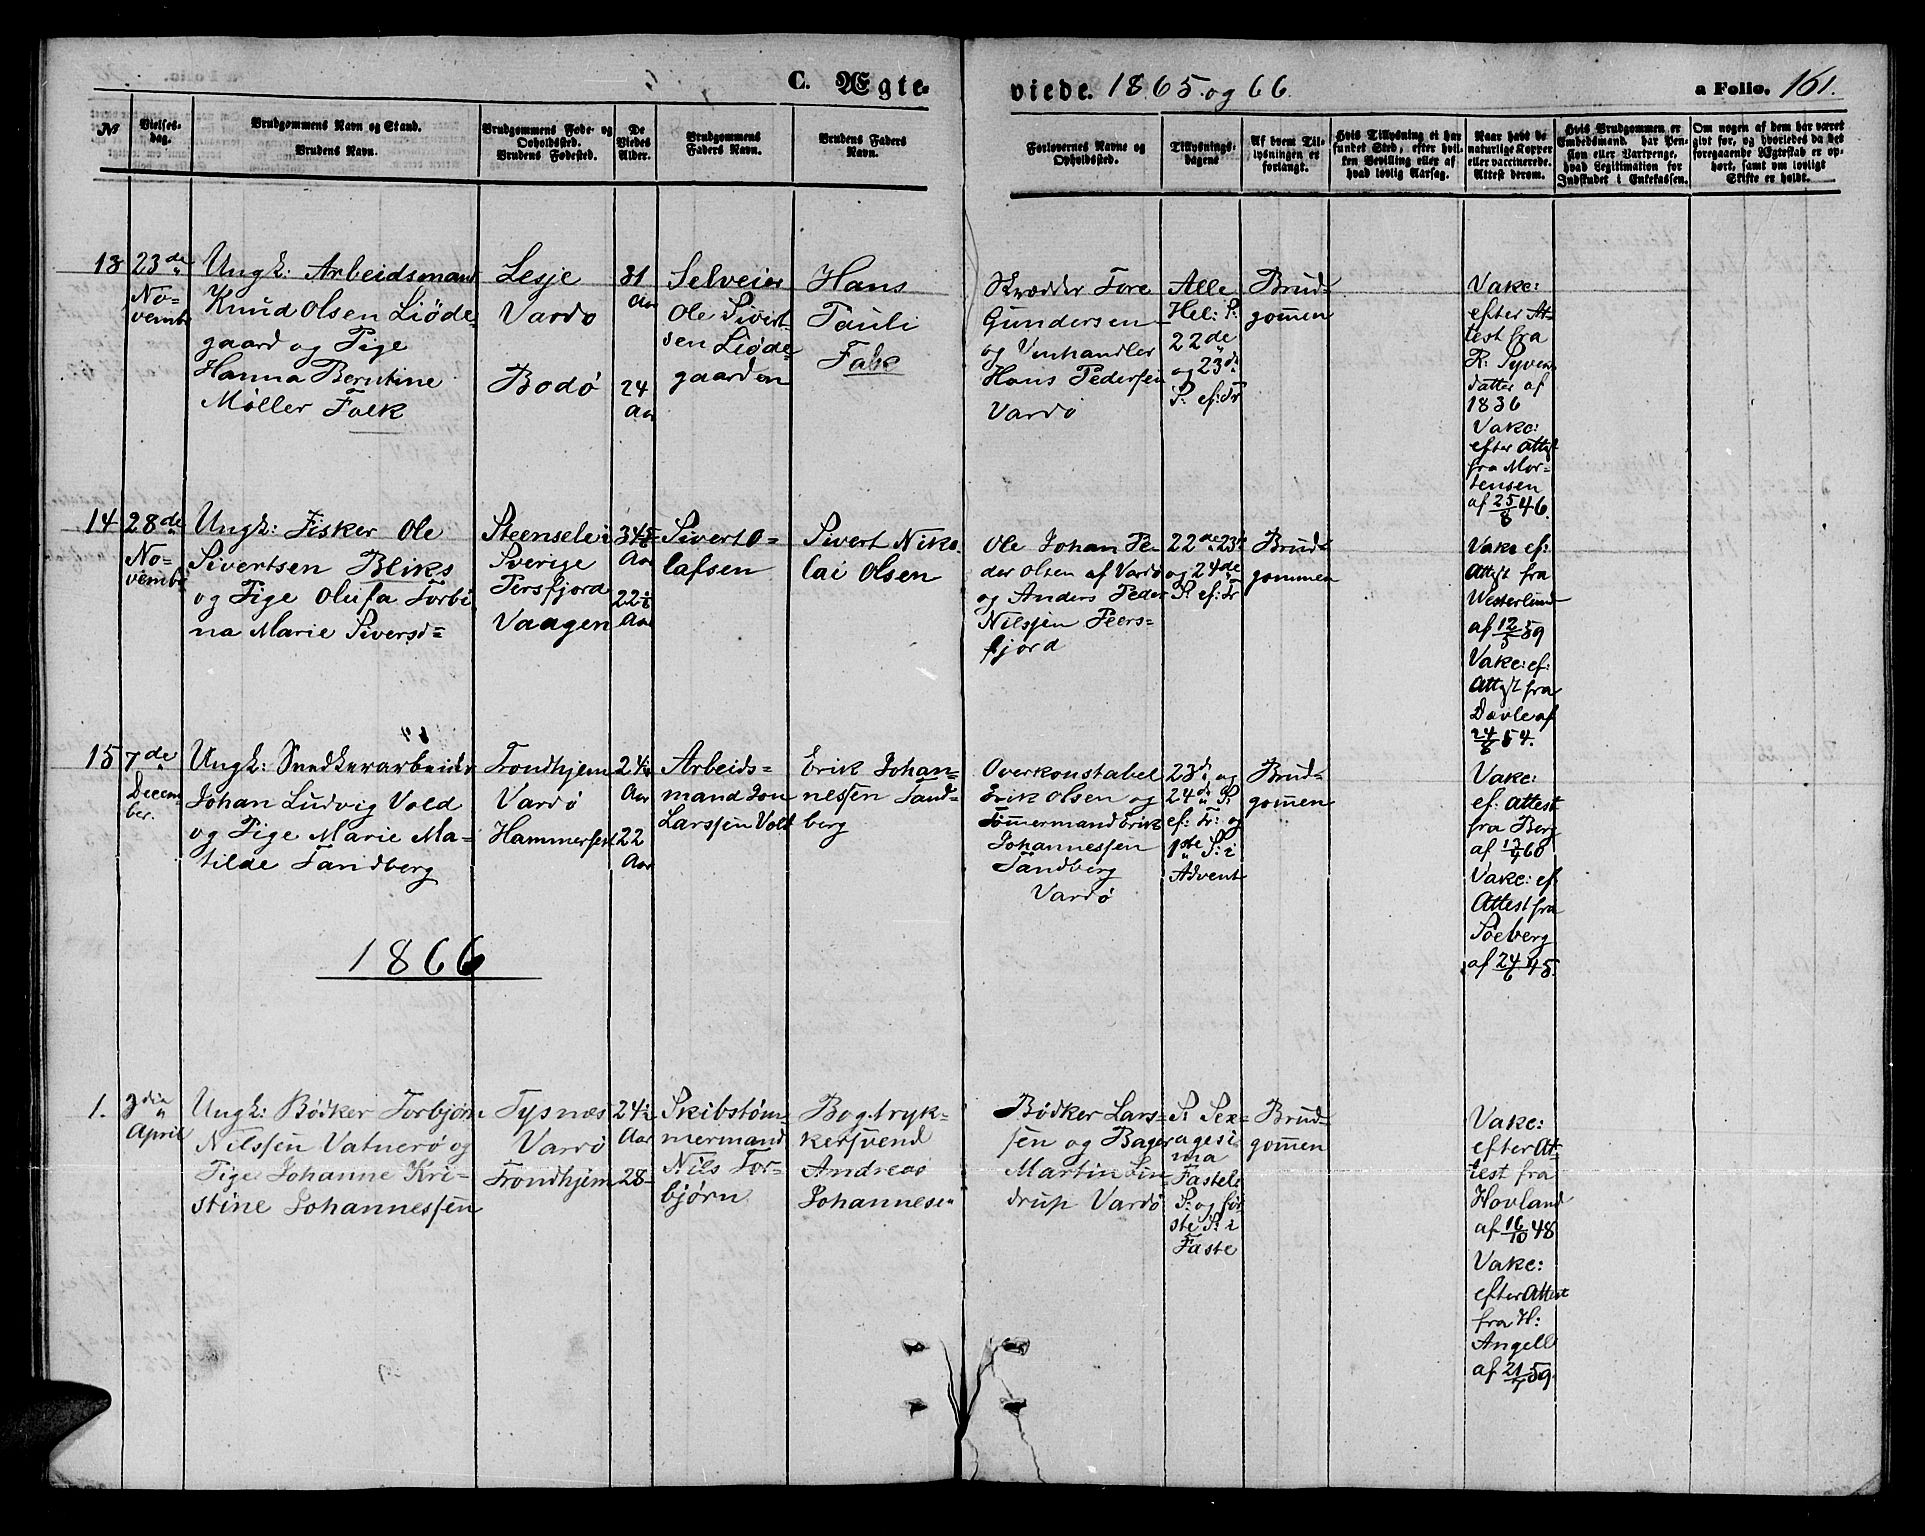 C. Ægte-
viede. 1865. og 66.
a Folio. 161.
No
Vielses-
dag.
Brudgommens Navn og Stand.
Brudens Navn.
Brudgommens Føde- og
Opholdssted.
Brudens Fødested.
De
Viedes
Alder.
Brudgommens
Faders Navn.
Brudens Faders
Navn.
Forlovernes Navne og
Opholdssted.
Tillysnings-
dagene
Af hvem Til-
lysningen er
forlangt.
Hvis Tillysning ei har
fundet Sted, efter hvil-
ken Bevilling eller af
hvad lovlig Aarsag.
Naar havt de
naturlige Kopper
eller vaccinerede.
Attest derom.
Hvis Brudgommen er
Embedsmand har Pen-
sion eller Vartpenge,
hvad Legitimation for
Indskudet i Enkekassen.
Om nogen af dem har været
givt før, og hvorledes da det
foregaaende Ægteskab er op-
hørt, samt om lovligt
Skifte er holdt.
13
23de
No=
vembr
Ungk: Arbeidsmand
Knud Olsen Liøde-
gaard og Pige
Hanna Berntine
Møller Falk
Lesje
Vardø
Bodø
31
Aar
24
Aar
Selveier
Ole Sivert-
sen Liøde-
gaarden
Hans
Pauli
Falk
Skrædder Tore
Gundersen
og Vinhandler
Hans Pedersen
Vardø
Alle
Hel: S:
22de
og 23de
S: ef: Tr
Brud-
gommen
Vake:
efter At-
test fra
R: Syver
datter af
1836
Vake:
efter Attest
fra Mor-
tensen
af 25/8 46.
14
28de
No=
vembr
Ungk: Fisker Ole
Sivertsen Bliks
og Pige Olufa Torbi
na Marie Siversd=
Steensele i
Sverige
Persfjord
Vaagen
34
Aar
22
Aar
Sivert O=
lafsen
Sivert Niko-
lai Olsen
Ole Johan Pe-
der Olsen af Vardø
og Anders Peder
Nilssen Peers=
fjord
22de 23de
og 24de
S: ef: Tr
Brud-
gommen
Vake ef:
Attest fra
Westerlund
af 12/5 39
Vake: ef:
Attest fra
Dævle af
24/8 54.
15
7de
Decem-
ber.
Ungk: Snedkerarbeider
Johan Ludvig Vold
og Pige Marie Ma-
tilde Tandberg
Trondhjem
Vardø
Hammerfest
24
Aar
22
Aar
Arbeids=
mand Jon
Larssen Vold
Erik Johan-
nessen Tand-
berg
Overkonstabel
Erik Olsen og
Tømmermand Erik
Johannessen
Tandberg
Vardø
23de og
24de S:
ef: Tr: og
1ste S: i
Advent
Brud-
gommen
Vake:
ef: Attest
fra Berg
af 60
Vake: ef
Attest fra
Søeberg
af 24/6 45.
1866
1.
3die
April
Ungk: Bødker Torbjørn
Nilssen Vatnerø og
Pige Johanne Kri-
stine Johannessen
Tysnæs
Vardø
Trondhjem
24½
Aar
28
Skibstøm-
mermand
Nils Tor-
bjørn
Bogtryk-
kersvend
Andreas
Johannesen
Bødker Lars-
sen og Bager
Martin Lin-
drup Vardø
S: Sex-
agesi
ma
Fastel
S: og før-
ste S: i
Faste
Brud-
gommen
Vake:
efter At-
test fra
Hovland
af 16/10 48
Vake:
efter Attest
fra H:
Angell
af 21/7 59